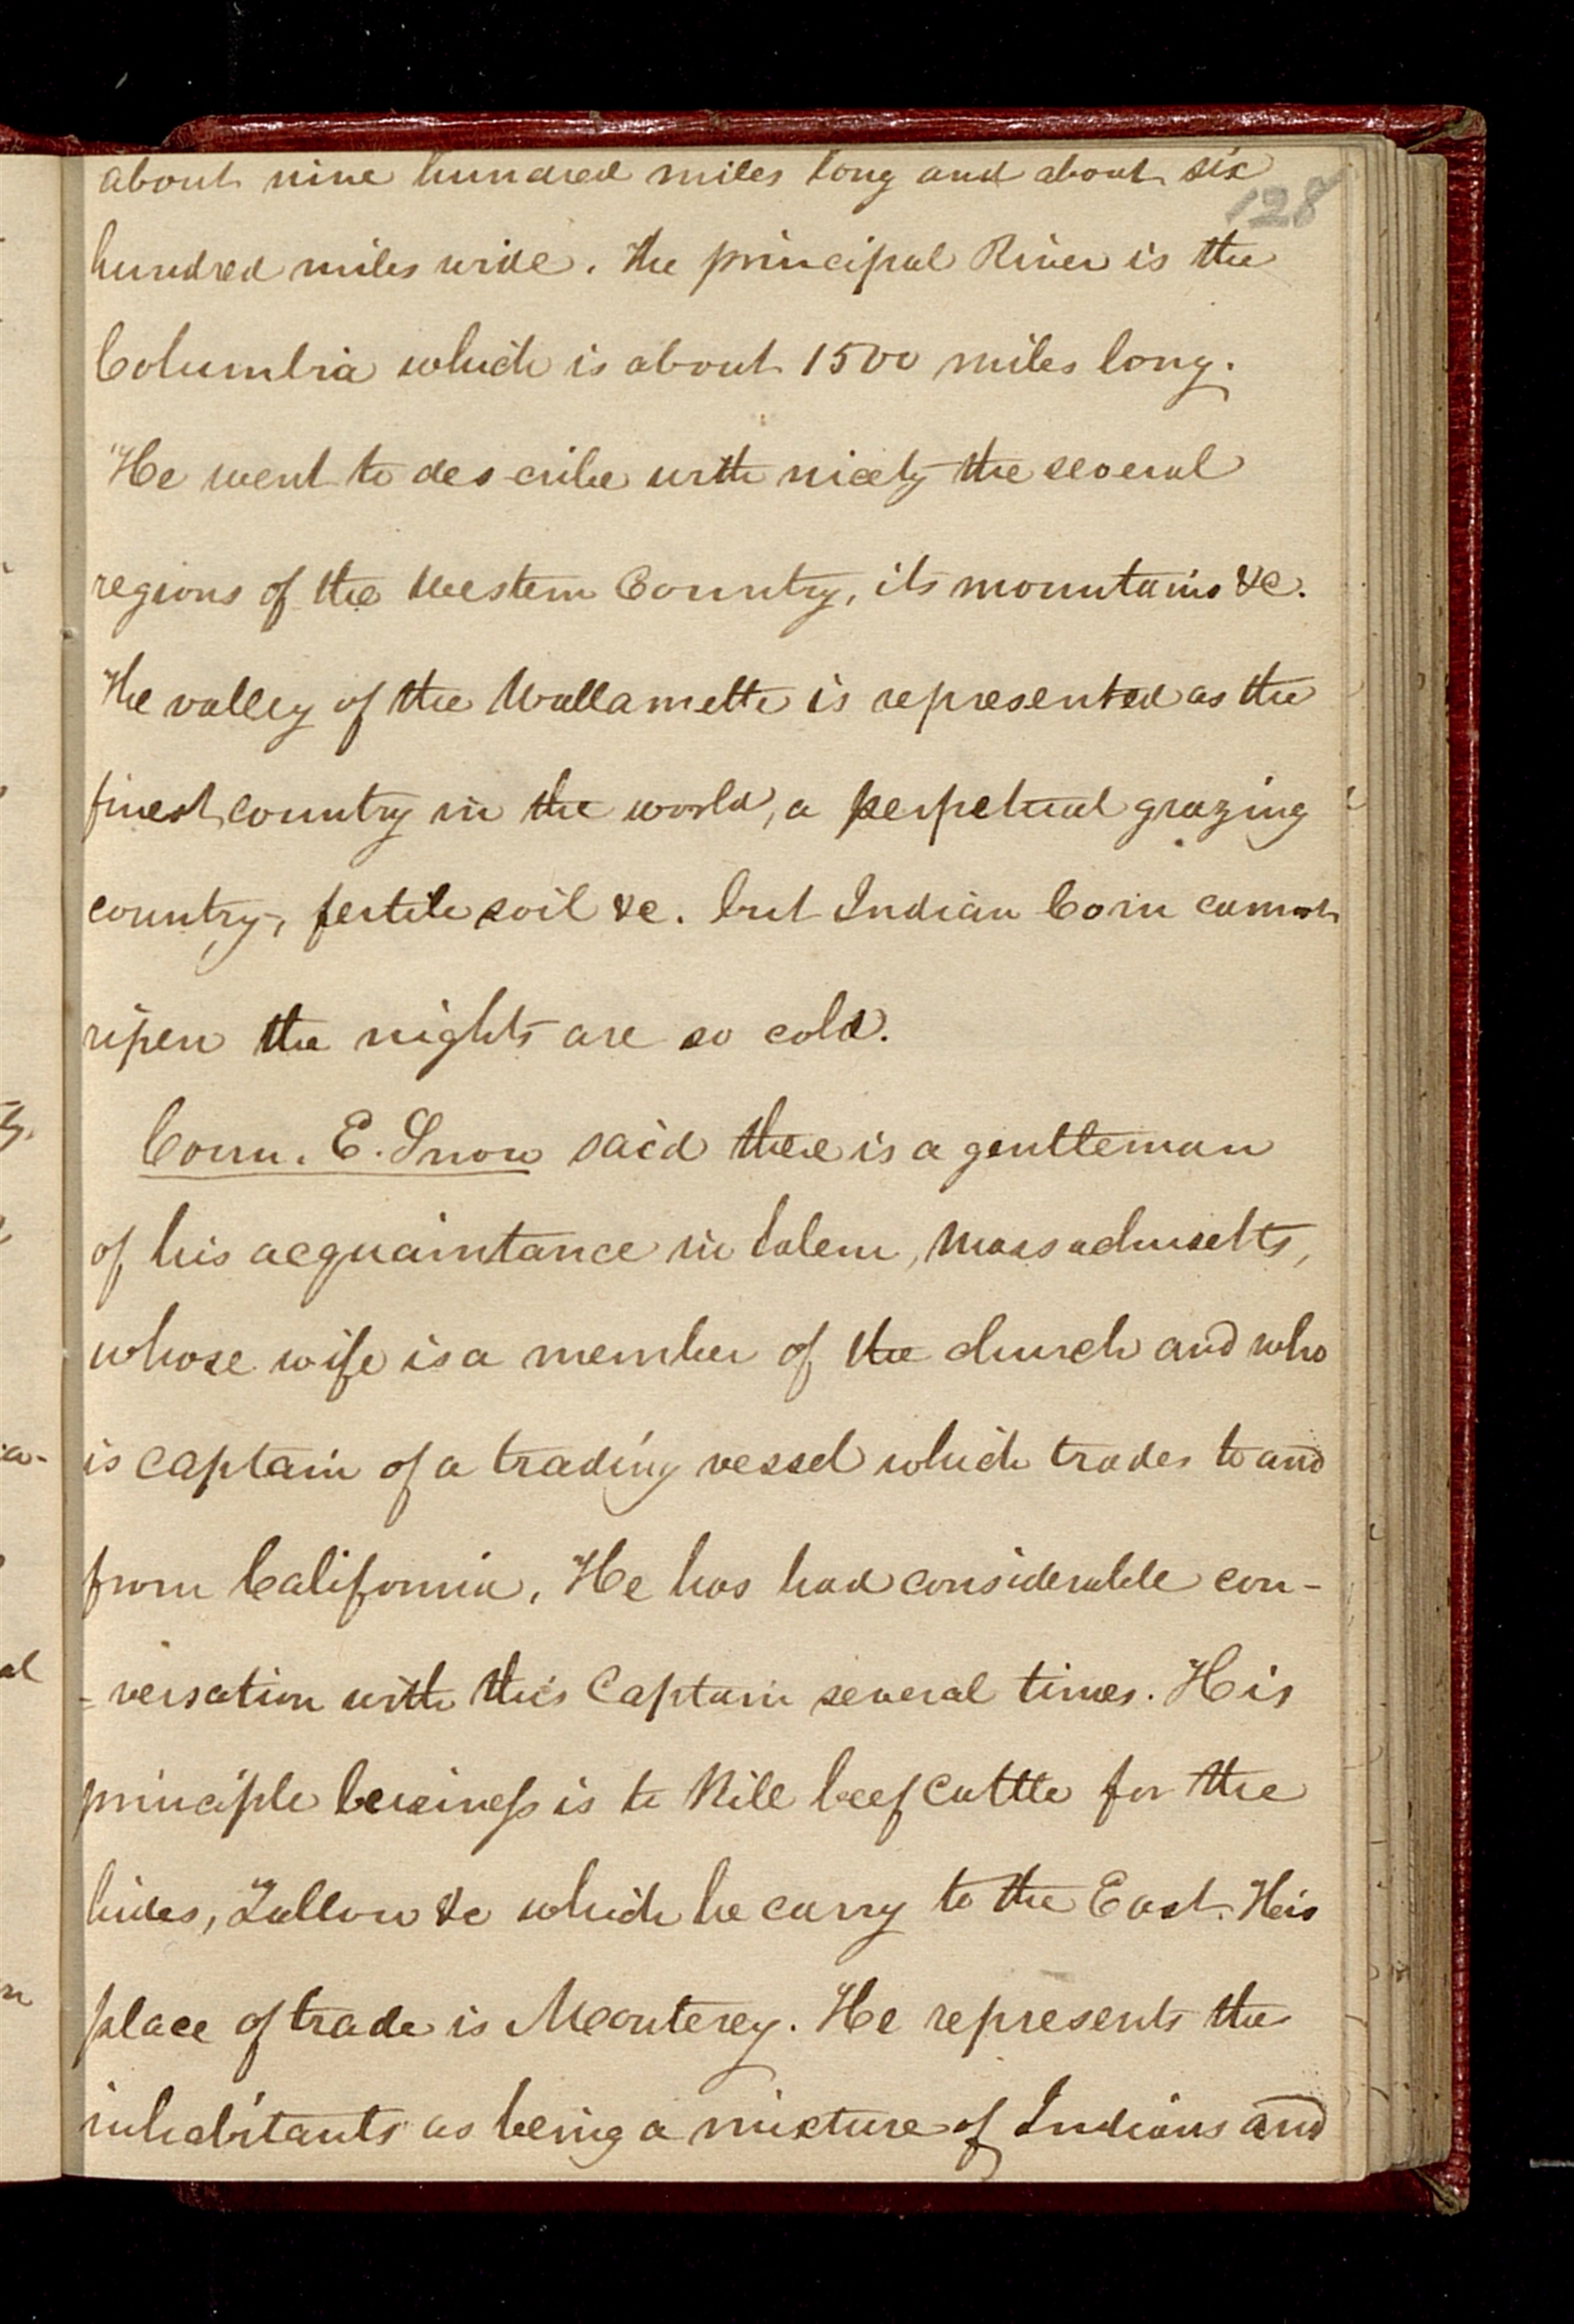 about nine hundred miles long and about six
128
hundred miles wide. The principal River is the
Columbia which is about 1500 miles long.
He went to describe with nicety the several
regions of the Western Country, its mountains &c.
The valley of the Wallamette is represented as the
finest country in the world, a perpetual grazing
country, fertile soil &c. but Indian Corn cannot
ripen the nights are so cold.
Coun. E. Snow said there is a gentleman
of his acquaintance in Salem, Massachusetts,
whose wife is a member of the church and who
is captain of a trading vessel which trades to and
from California. He has had considerable con-
-versation with this Captain several times. His
principle business is to kill beef cattle for the
hides, Tallow &c which he carry to the East. His
place of trade is Monterey. He represents the
inhabitants as being a mixture of Indians and